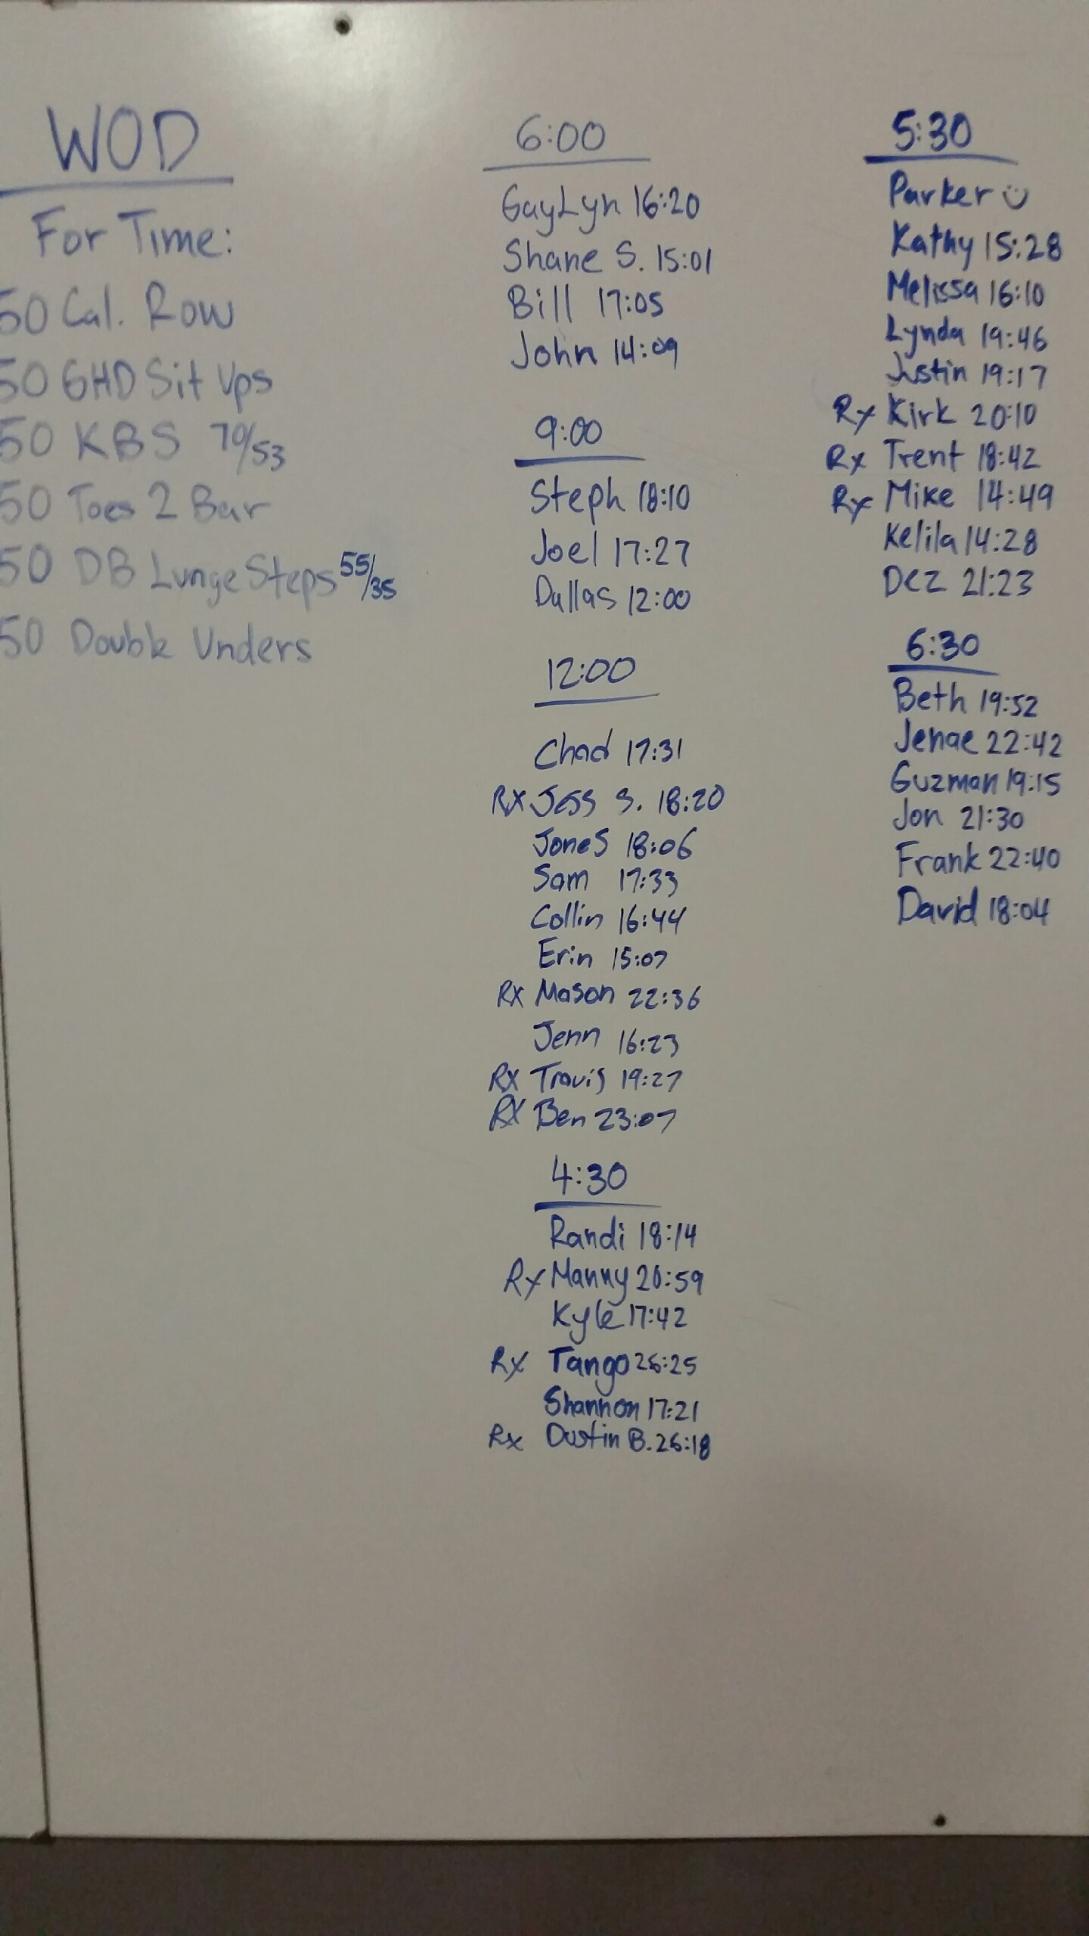 WOD
For Time:
50 Cal. Row
50 GHD Sit Ups
50 KBS 70/53
50 Toes 2 Bar
50 DB Lunge Steps 55/35
50 Double Unders
6:00
GayLyn 16:20
Shane S. 15:01
Bill 17:05
John 14:09
9:00
Steph 18:10
Joel 17:27
Dallas 12:00
12:00
Chad 17:31
RX Jess S. 18:20
Jones 18:06
Sam 17:33
Collin 16:44
Erin 15:07
RX Mason 22:36
Jenn 16:23
RX Travis 19:27
RX Ben 23:07
4:30
Randi 18:14
Rx Manny 20:59
Kyle 17:42
Rx Tango 26:25
Shannon 17:21
Rx Dustin B. 26:18
5:30
Parker
Kathy 15:28
Melissa 16:10
Lynda 19:46
Justin 19:17
Rx Kirk 20:10
Rx Trent 18:42
Rx Mike 14:49
Kelila 14:28
Dez 21:23
6:30
Beth 19:52
Jenae 22:42
Guzman 19:15
Jon 21:30
Frank 22:40
David 18:04